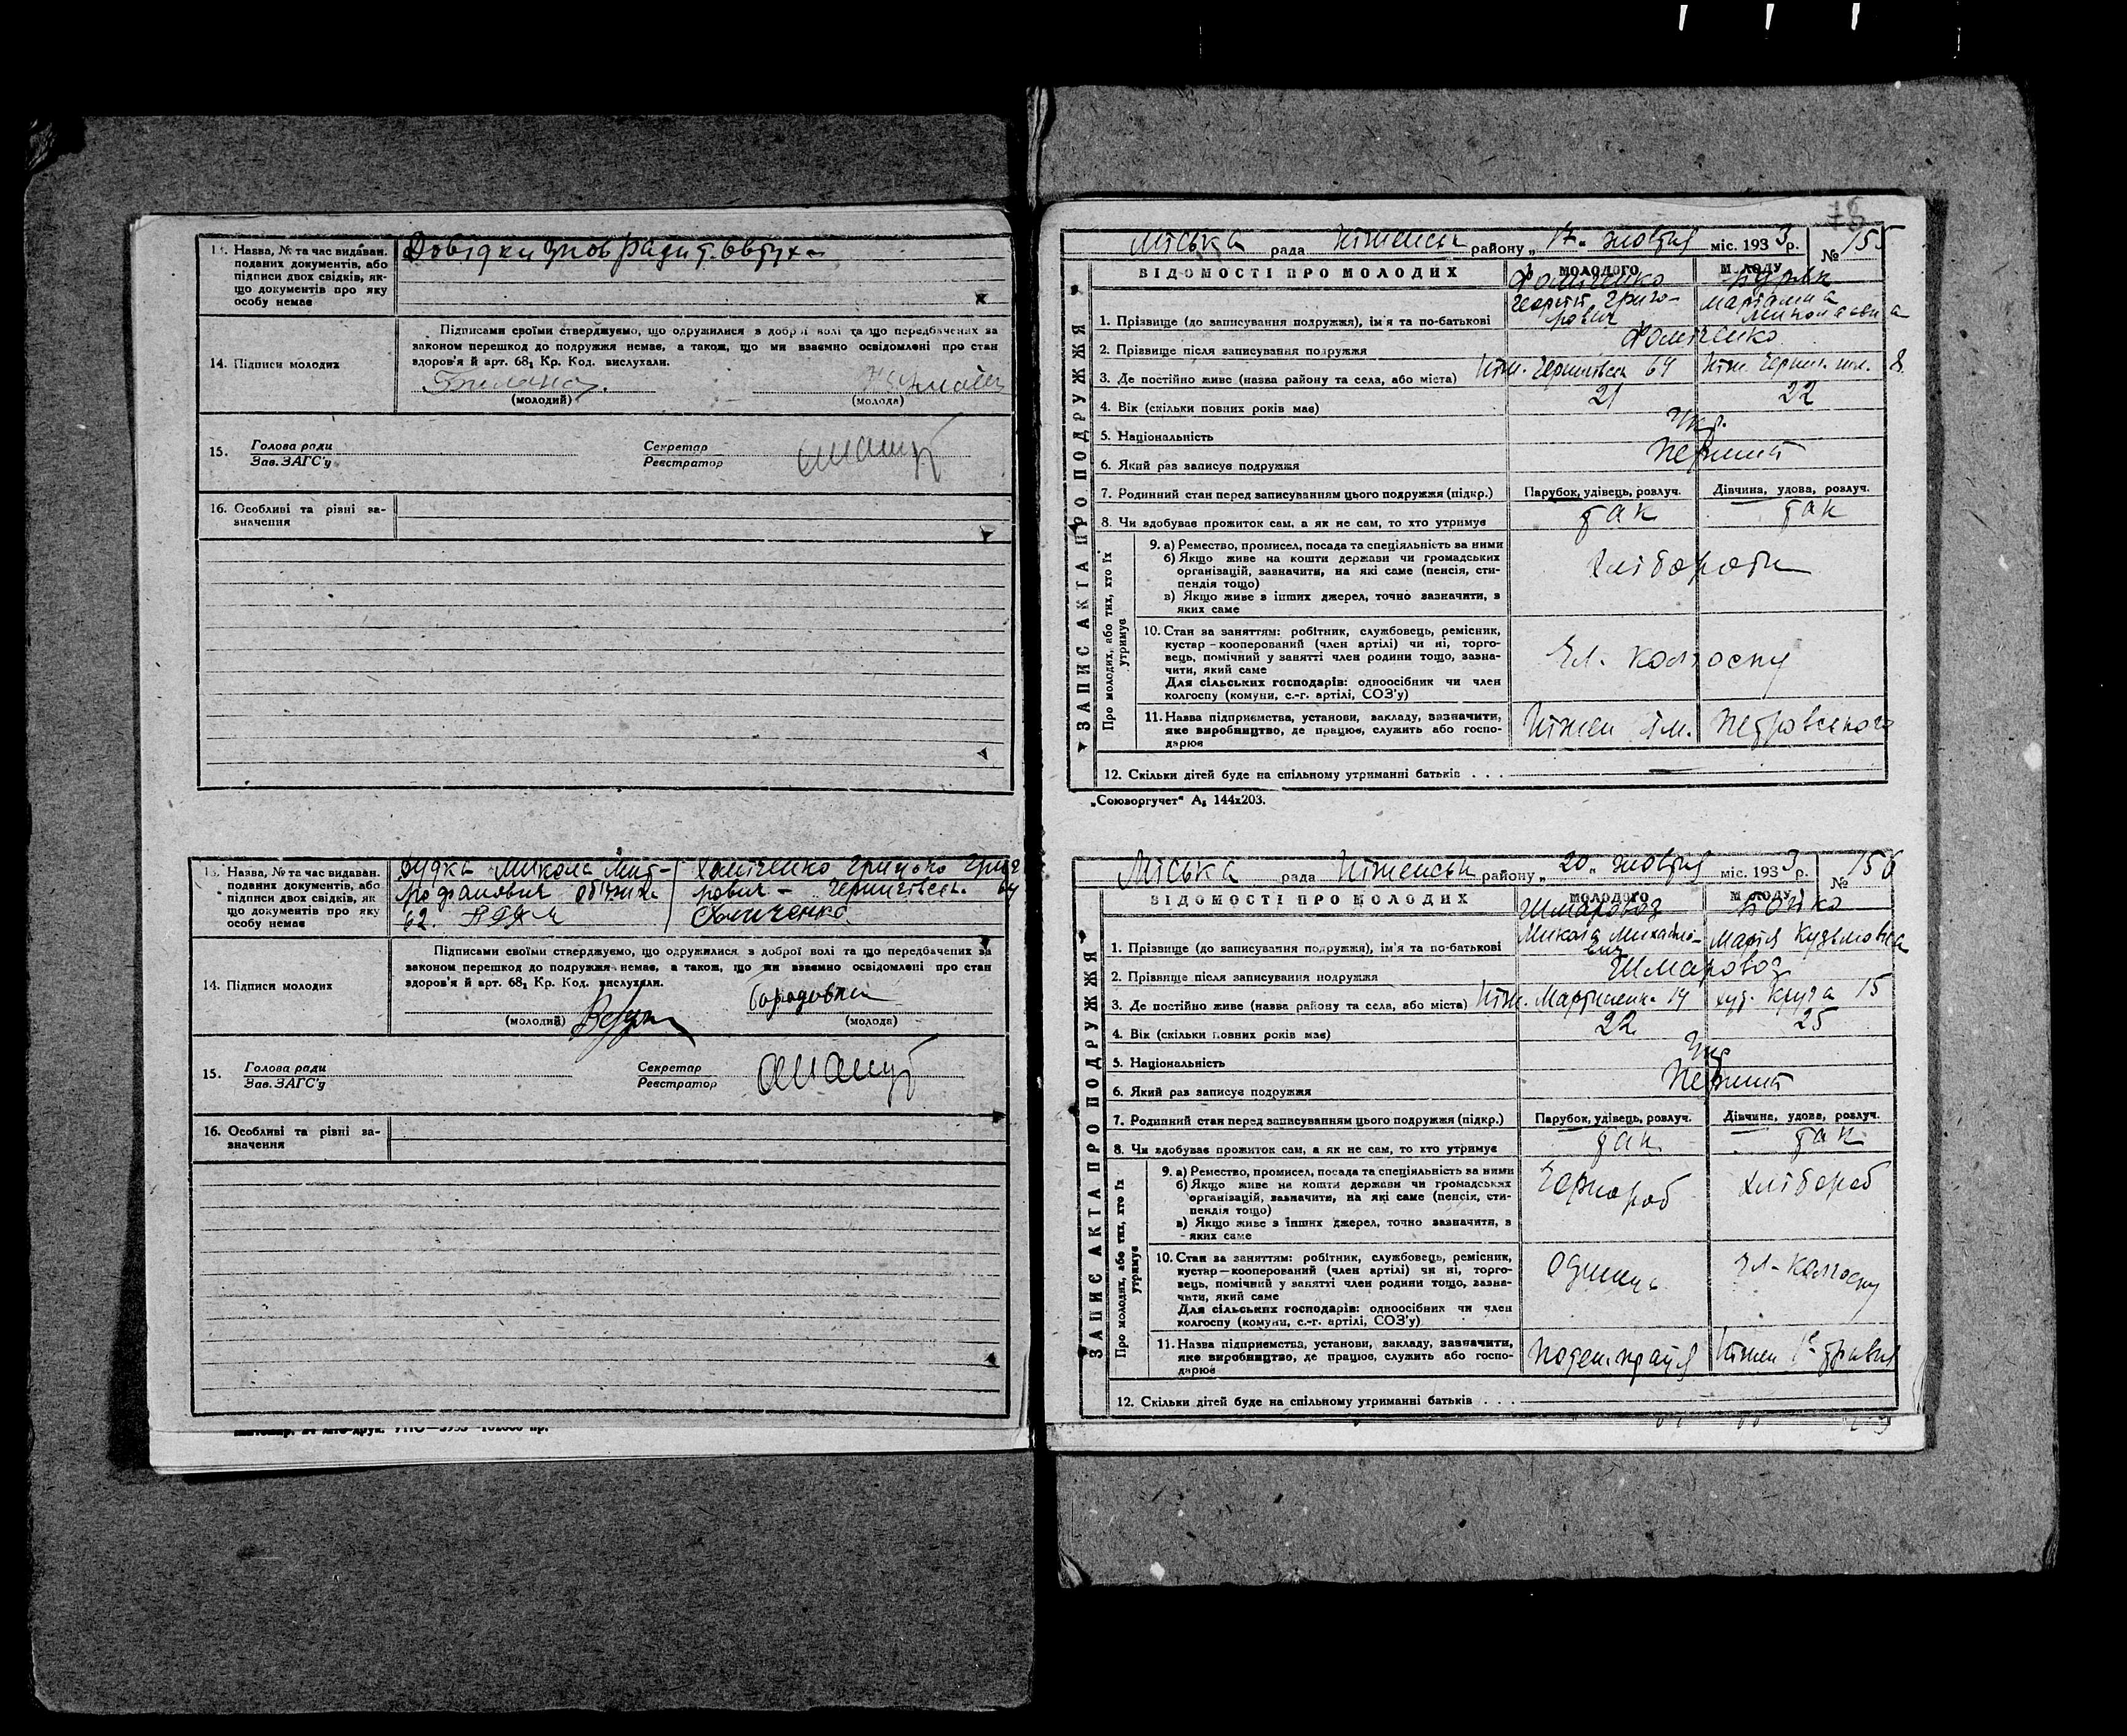 13. Назва, № та час видаван.
поданих документів, або
підписи двох свідків, як-
що документів про яку
особу немає
14. Підписи молодих
Підписами своїми стверджуємо, що одружилися з доброї волі та що передбачених за
законом перешкод до подружжя немає, а також, що ми взаємно освідомлені про стан
здоров'я й арт. 68₁ Кр. Код. вислухали.
(молодий) (молода)
15. Голова ради Секретар
Зав. ЗАГС'у Реєстратор
16. Особливі та рівні за-
значення
13. Назва, № та час видаван.
поданих документів, або
підписи двох свідків, як
що документів про яку
особу немає
Дудка Микола Мит-
рофанович
62.
Хоміченко Грицько Григо
рович – Чернигівськ. 64
Хомиченко
14. Підписи молодих
Підписами своїми стверджуємо, що одружилися з доброї волі та що передбачених за
законом перешкод до подружжя немає, а також, що ми взаємно освідомлені про стан
здоров'я й арт. 68₁ Кр. Код. вислухали.
(молодий) (молода)
15. Голова ради Секретар
Зав. ЗАГС'у Реєстратор
16. Особливі та рівні за-
значення
78
Міська рада Ніженськ району „17" жовтня міс. 1933 р. № 155
ВІДОМОСТІ ПРО МОЛОДИХ МОЛОДОГО МОЛОДУ
ЗАПИС АКТА ПРО ПОДРУЖЖЯ
1. Прізвище (до записування подружжя), ім'я та по-батькові
Хоміченко
Георгій Григо-
рович
Мар'яна
Миколаєвна
2. Прізвище після записування подружжя Хоміченко
3. Де постійно живе (назва району та села, або міста) Ніж. Чернигівськ 64 Ніж. Черниг. шл. 8.
4. Вік (скільки повних років має) 21 22
5. Національність Укр.
6. Який раз записує подружжя Перший
7. Родинний стан перед записуванням цього подружжя (підкр.) Парубок, удівець, розлуч. Дівчина, удова, розлуч.
8. Чи здобуває прожиток сам, а як не сам, то хто утримує так так
Про молодих, або тих, хто їх утримує
9. а) Ремество, промисел, посада та спеціяльність за ними
б) Якщо живе на кошти держави чи громадських
організацій, зазначити, на які саме (пенсія, сти-
пендія тощо)
в) Якщо живе з інших джерел, точно зазначити, з
яких саме
Хлібороби
10. Стан за заняттям: робітник, службовець, ремісник,
кустар – кооперований (член артілі) чи ні, торго-
вець, помічний у занятті член родини тощо, зазна-
чити, який саме
Для сільських господарів: одноосібник чи член
колгоспу (комуни, с.-г. артілі, СОЗ'у)
Чл. колгоспу
11. Назва підприємства, установи, закладу, зазначити,
яке виробництво, де працює, служить або госпо-
дарює
Ніжен ім. Петровського
12. Скільки дітей буде на спільному утриманні батьків . . . —
„Союзоргучет" А₅ 144х203.
Міська рада Ніженськ району „20" жовтня міс. 1933 р. № 156
ВІДОМОСТІ ПРО МОЛОДИХ МОЛОДОГО МОЛОДУ
ЗАПИС АКТА ПРО ПОДРУЖЖЯ
1. Прізвище (до записування подружжя), ім'я та по-батькові
Шмаровоз
Микола Михайло-
вич
Бойко
Марія Кузьмовна
2. Прізвище після записування подружжя Шмаровоз
3. Де постійно живе (назва району та села, або міста) Ніж. 14 худ. Круча 15
4. Вік (скільки повних років має) 22 25
5. Національність Укр
6. Який раз записує подружжя Перший
7. Родинний стан перед записуванням цього подружжя (підкр.) Парубок, удівець, розлуч. Дівчина, удова, розлуч.
8. Чи здобуває прожиток сам, а як не сам, то хто утримує так так
Про молодих, або тих, хто їх утримує
9. а) Ремество, промисел, посада та спеціяльність за ними
б) Якщо живе на кошти держави чи громадських
організацій, зазначити, на які саме (пенсія, сти-
пендія тощо)
в) Якщо живе з інших джерел, точно зазначити, з
яких саме
Чорнороб Хлібороб
10. Стан за заняттям: робітник, службовець, ремісник,
кустар – кооперований (член артілі) чи ні, торго-
вець, помічний у занятті член родини тощо, зазна-
чити, який саме
Для сільських господарів: одноосібник чи член
колгоспу (комуни, с.-г. артілі, СОЗ'у)
Чл. колгоспу
11. Назва підприємства, установи, закладу, зазначити,
яке виробництво, де працює, служить або госпо-
дарює
Поден. праця Ніжен 1е травня
12. Скільки дітей буде на спільному утриманні батьків . . .